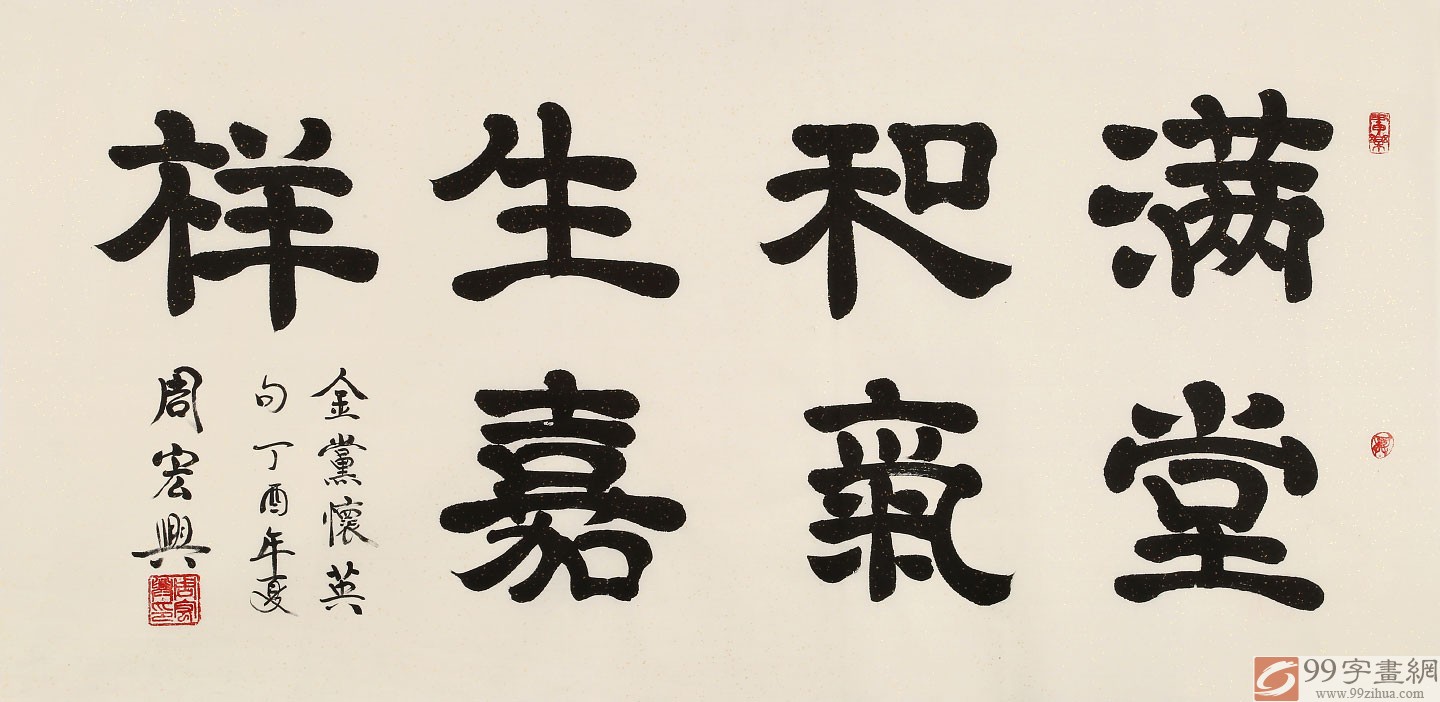 满堂
和氣
生嘉
祥
金黨懷英
句丁酉年夏
周宏興
99字畫網
www.99zihua.com